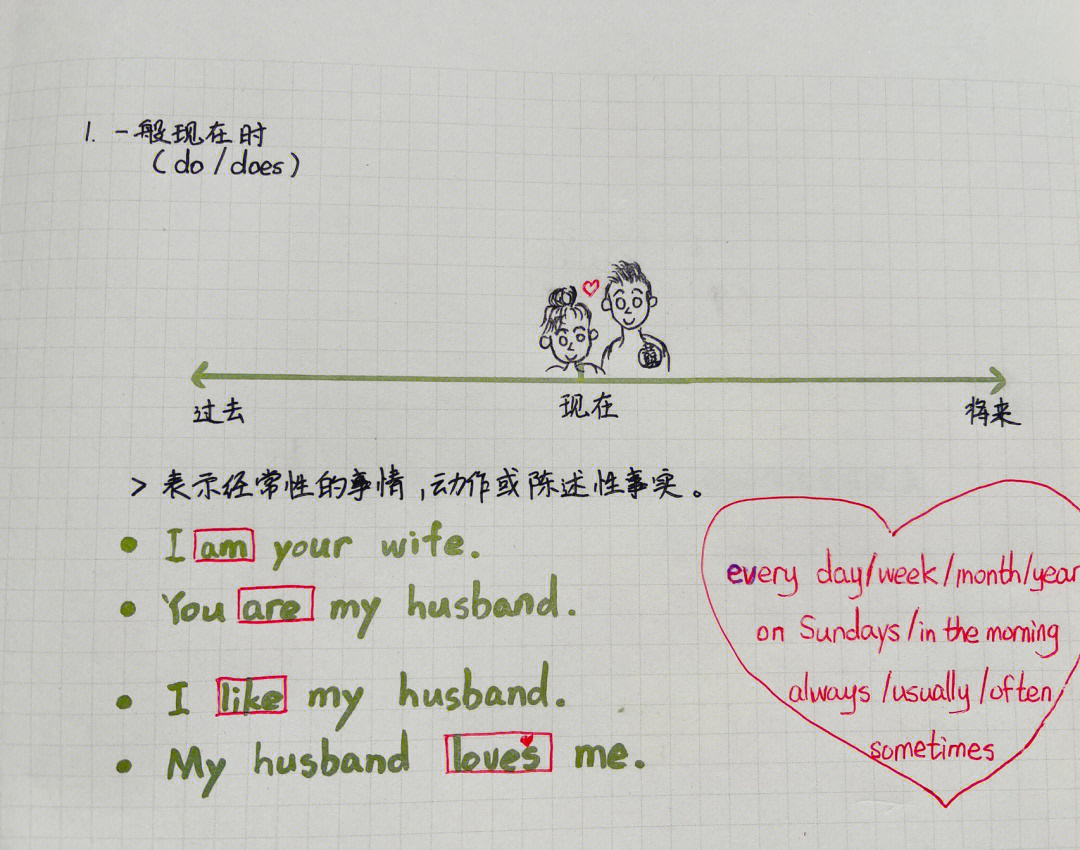 1. 一般现在时
(do/does)
过去 现在 将来
> 表示经常性的事情,动作或陈述性事实。
• I am your wife.
• You are my husband.
• I like my husband.
• My husband loves me.
every day/week/month/year
on Sundays/in the morning
always/usually/often/
sometimes